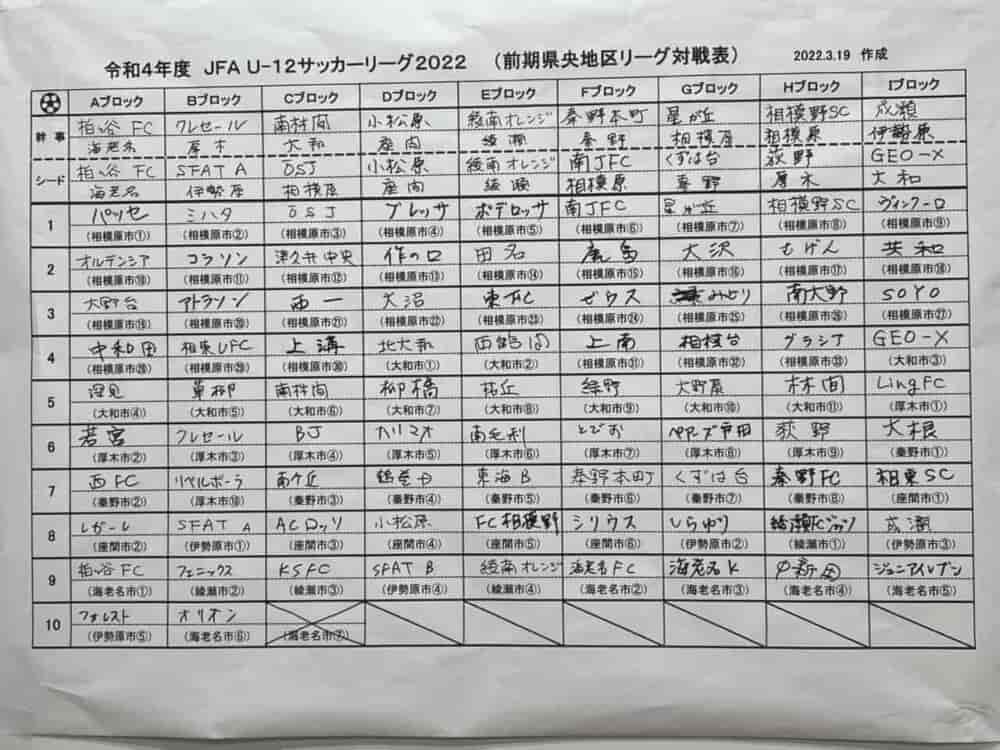 令和4年度 JFA U-12サッカーリーグ2022 (前期県央地区リーグ対戦表) 2022.3.19 作成
Aブロック Bブロック Cブロック Dブロック Eブロック Fブロック Gブロック Hブロック Iブロック
幹事 柏ヶ谷 FC クレセール 南林間 小松原 綾南オレンジ 秦野本町 星が丘 相模野SC 成瀬
海老名 厚木 大和 座間 綾瀬 秦野 相模原 相模原 伊勢原
シード 柏ヶ谷 FC SFAT A OSJ 小松原 綾南オレンジ 南JFC くずは台 荻野 GEO-X
海老名 伊勢原 相模原 座間 綾瀬 相模原 秦野 厚木 大和
1 パッセ ミハタ OSJ ブレッサ ポデロッサ 南JFC 星が丘 相模野SC ヴィンクーロ
(相模原市①) (相模原市②) (相模原市③) (相模原市④) (相模原市⑤) (相模原市⑥) (相模原市⑦) (相模原市⑧) (相模原市⑨)
2 オルテンシア コラソン 津久井中央 作の口 田名 鹿島 大沢 もげん 共和
(相模原市⑩) (相模原市⑪) (相模原市⑫) (相模原市⑬) (相模原市⑭) (相模原市⑮) (相模原市⑯) (相模原市⑰) (相模原市⑱)
3 大野台 アトラソン 西一 大沼 東FC ゼウス みどり 南大野 SOYO
(相模原市⑲) (相模原市⑳) (相模原市㉑) (相模原市㉒) (相模原市㉓) (相模原市㉔) (相模原市㉕) (相模原市㉖) (相模原市㉗)
4 中和田 相東UFC 上溝 北大和 西鶴間 上南 相模台 グラシア GEO-X
(相模原市㉘) (相模原市㉙) (相模原市㉚) (大和市①) (大和市②) (相模原市㉛) (相模原市㉜) (相模原市㉝) (大和市③)
5 深見 草柳 南林間 柳橋 緑野 大野原 林間 LingFC
(大和市④) (大和市⑤) (大和市⑥) (大和市⑦) (大和市⑧) (大和市⑨) (大和市⑩) (大和市⑪) (厚木市①)
6 若宮 クレセール BJ カリマオ 南毛利 とびお 戸田 荻野 大根
(厚木市②) (厚木市③) (厚木市④) (厚木市⑤) (厚木市⑥) (厚木市⑦) (厚木市⑧) (厚木市⑨) (秦野市①)
7 西FC リベルボーラ 南ケ丘 鶴巻 東海B 秦野本町 くずは台 秦野FC 相東SC
(秦野市②) (厚木市⑩) (秦野市③) (秦野市④) (秦野市⑤) (秦野市⑥) (秦野市⑦) (秦野市⑧) (座間市①)
8 レガーレ SFAT A ACロッソ 小松原 FC相模野 シリウス しらゆり 成瀬
(座間市②) (伊勢原市①) (座間市③) (座間市④) (座間市⑤) (座間市⑥) (伊勢原市②) (綾瀬市①) (伊勢原市③)
9 柏ヶ谷 FC フェニックス KSFC SFAT B 綾南オレンジ 海老名FC 海老名K 中新田 ジュニアイレブン
(海老名市①) (綾瀬市②) (綾瀬市③) (伊勢原市④) (綾瀬市④) (海老名市②) (海老名市③) (海老名市④) (海老名市⑤)
10 フォレスト オリオン
(伊勢原市⑤) (海老名市⑥) (海老名市⑦)